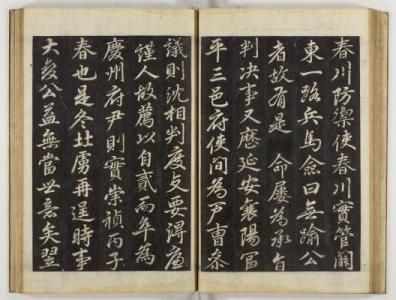 春川防禦使春川實管關
東一路兵馬僉曰無踰公
者故有是 命屢為承旨
判决事又歷延安襄陽富
平三邑府使間為戶曹叅
議則沈相判度支要得廉
謹人故薦以自貳而卒為
慶州府尹則實崇禎丙子
春也是冬北虜再逞時事
大変公益無當世意矣翌